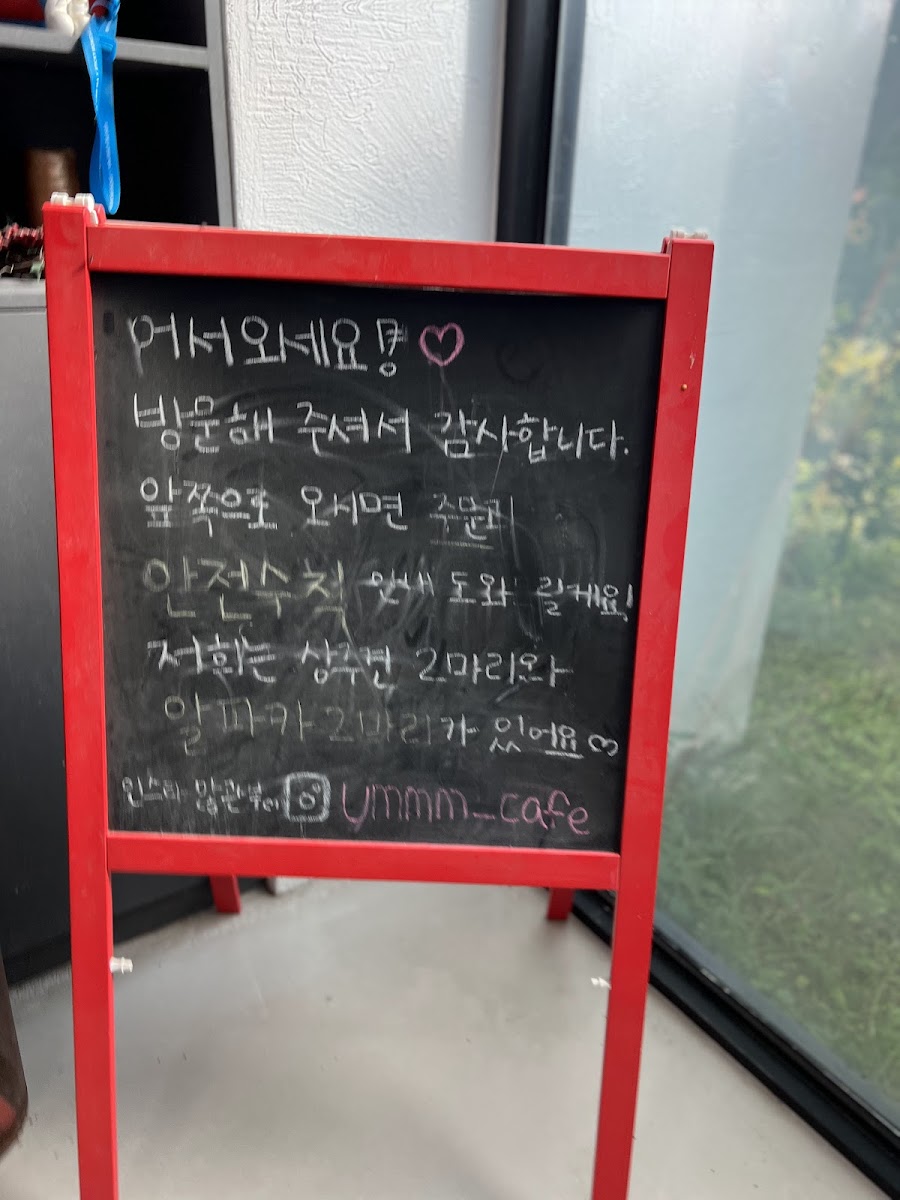 어서와세요
방문해 주셔서 감사합니다.
앞쪽으로 오시면 주문과
안전수칙 안내 도와 릴게요!
저희는 상주견 2마리와
알파카 2마리가 있어요♡
인스타 많관부 ymmm_cafe